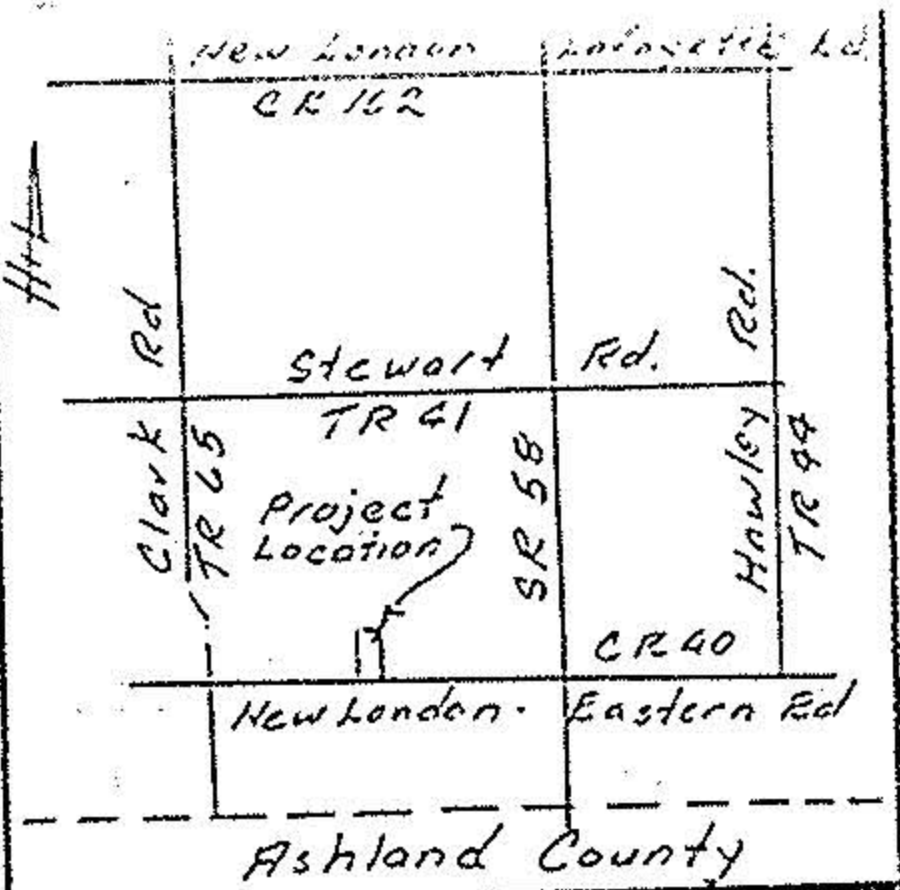 New London
Lafayette Rd.
CR 162
Clark Rd
Stewart Rd.
TR 41
TR 65
Project
Location
SR 58
Hawley Rd.
TR 44
CR 40
New London - Eastern Rd
Ashland County